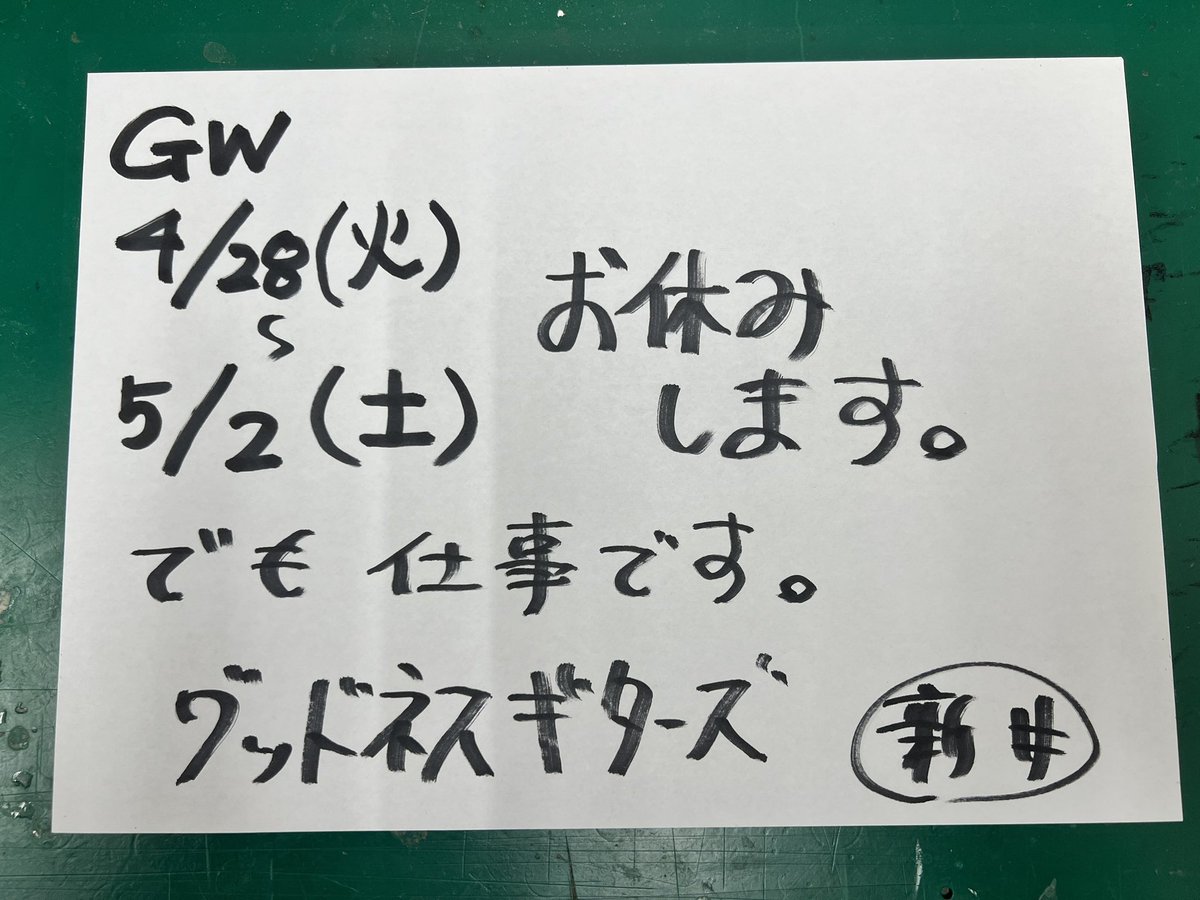 GW
4/28(火)
〜
5/2(土)
お休み
します。
でも 仕事です。
グッドネスギターズ 新井